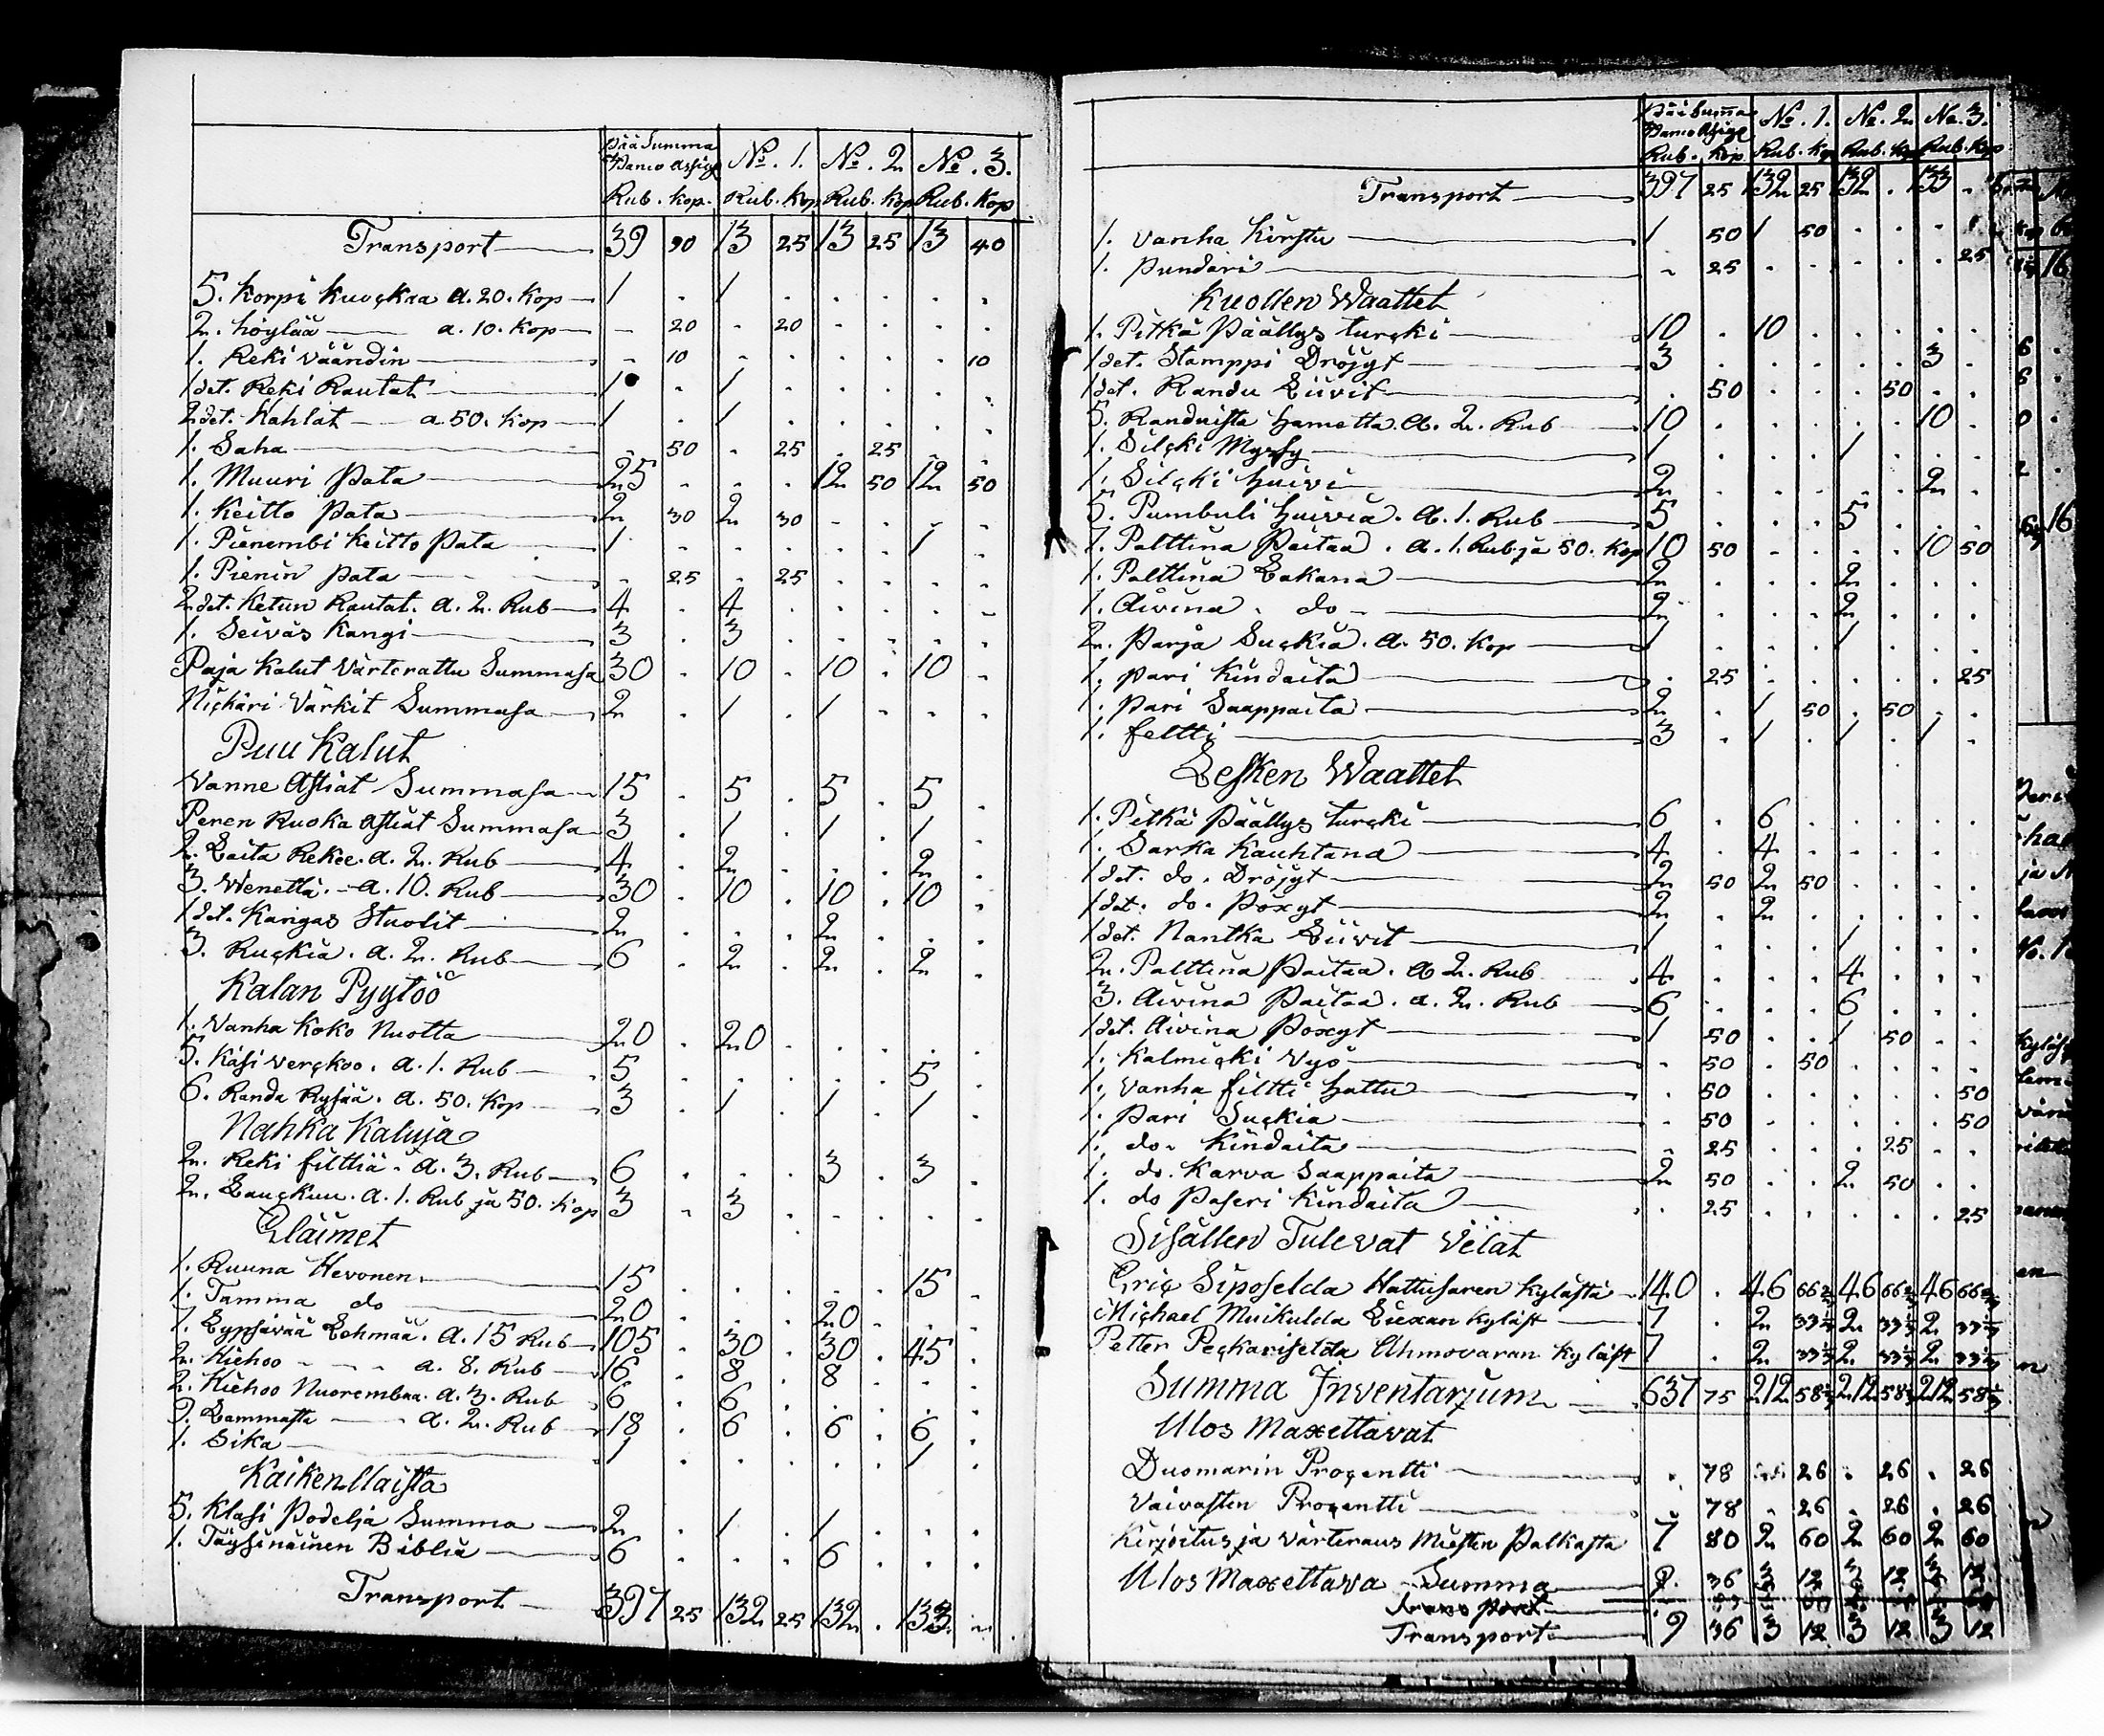 Pää Summa
Banco Assign
№. 1. №. 2 №. 3.
Rub. Kop. Rub. Kop Rub. Kop Rub. Kop
Transport 39 90 13 25 13 25 13 40
5. Korpi Kuockaa a. 20. Kop 1 . 1 . . . . .
2. höylää a. 10. Kop - 20 . 20 . . . .
1. Reki väändin - 10 . . . . . 10
1 det. Reki Rautat 1 . 1 . . . . .
2 det. Kahlat a 50. Kop 1 . 1 . . . . .
1. Saha . 50 . 25 . 25 . .
1. Muuri Pata 25 . . . 12 50 12 50
1. Keitto Pata 2 30 2 30 . . . .
1. Pienembi Keitto Pata 1 . . . . . 1 .
1. Pienin Pata . 25 . 25 . . . .
2 det. Ketun Rautat. a. 2. Rub 4 . 4 . . . . .
1. Seiväs Kangi 3 . 3 . . . . .
Paja Kalut Värterattu Summasa 30 . 10 . 10 . 10 .
Nickäri Värkit Summasa 2 . 1 . 1 . . .
Puu Kalut
Vanne Astiat Summasa 15 . 5 . 5 . 5 .
Peren Ruoka Astiat Summasa 3 . 1 . 1 . 1 .
2. Laita Rekee. a. 2. Rub 4 . 2 . . . 2 .
3. Wenettä. a. 10. Rub 30 . 10 . 10 . 10 .
1 det. Kangas Stuolit 2 . . . 2 . . .
3. Ruckia. a. 2. Rub 6 . 2 . 2 . 2 .
Kalan Pyytöö
1. Vanha Koko Nuotta 20 . 20 . . . . .
5. Käsi verckoo. a. 1. Rub 5 . . . . . 5 .
6. Randa Rysää. a. 50. Kop 3 . 1 . 1 . 1 .
Nahka Kaluja
2. Reki filttiä. a. 3. Rub 6 . . . 3 . 3 .
2. Lauckuu. a. 1. Rub ja 50. Kop 3 . 3 . . . . .
Eläimet
1. Ruuna Hevonen 15 . . . . . 15 .
1. Tamma do 20 . . . 20 . . .
7. Lypsävää Lehmää. a. 15 Rub 105 . 30 . 30 . 45 .
2. Hiehoo a. 8. Rub 16 . 8 . 8 . . .
2. Hiehoo Nuorembaa. a. 3. Rub 6 . 6 . . . . .
9. Lammasta a. 2. Rub 18 . 6 . 6 . 6 .
1. Sika 1 . . . . . 1 .
Kaikenllaista
5. Klasi Podelja Summa 2 . 1 . 1 . . .
1. Täysinäinen Biblia 6 . . . 6 . . .
Transport 397 25 132 25 132 . 133 .
Pää Summa
Banco Assign
№. 1. №. 2 №. 3.
Rub. Kop Rub. Kop Rub. Kop Rub. Kop
Transport 397 25 132 25 132 . 133 .
1. Vanha Kirstu 1 50 1 50 . . . .
1. Pundari . 25 . . . . . 25
Kuollen Waattet
1. Pitkä Päällys turcki 10 . 10 . . . . .
1 det. Stamppi Dröjyt 3 . . . . . 3 .
1 det. Randu Liivit . 50 . . . 50 . .
5. Randuista Hametta. a. 2. Rub 10 . . . . . 10 .
1. Silcki Myssy 1 . . . 1 . . .
1. Silcki Huivi 2 . . . . . 2 .
5. Pumbuli Huivia. a. 1. Rub 5 . . . 5 . . .
7. Palttina Paitaa. a. 1. Rub ja 50. Kop 10 50 . . . . 10 50
1. Palttina Lakana 2 . . . 2 . . .
1. Aivina do 2 . . . 2 . . .
2. Parja Suckia. a. 50. Kop 1 . . . 1 . . .
1. pari Kindaita . 25 . . . . . 25
1. Pari Saappaita 2 . 1 50 . 50 . .
1. feltti 3 . 1 . 1 . 1 .
Lesken Waattet
1. Pitkä Päällys turcki 6 . 6 . . . . .
1. Sarka Kauhtana 4 . 4 . . . . .
1 det. do. Dröjyt 2 50 2 50 . . . .
1 det. do. Pöxyt 2 . 2 . . . . .
1 det. Nantka Liivit 1 . . . 1 . . .
2. Palttina Paitaa. a 2. Rub 4 . . . 4 . . .
3. Aivina Paitaa. a. 2. Rub 6 . . . 6 . . .
1 det. Aivina Pöxyt 1 50 . . 1 50 . .
1. Kalmicki Vyö . 50 . 50 . . . .
1. Vanha filtti Hattu . 50 . . . . . 50
1. Pari Suckia . 50 . . . . . 50
1. do. Kindaita . 25 . . . 25 . .
1. do. Karva Saappaita 2 50 . . 2 50 . .
1. do Paseri Kindaita . 25 . . . . . 25
Sisällen Tulevat Velat
Eric Siposelda Hattusaren Kylästä 140 . 46 66⅔ 46 66⅔ 46 66⅔
Michael Muikulda Liexan Kyläst 7 . 2 33⅓ 2 33⅓ 2 33⅓
Petter Peckariselda Uhmovaran Kyläst 7 . 2 33⅓ 2 33⅓ 2 33⅓
Summa Inventarium 637 75 212 58⅓ 212 58⅓ 212 58⅓
Ulos Maxettavat
Duomarin Procentti . 78 . 26 . 26 . 26
Vaivasten Procentti . 78 . 26 . 26 . 26
Kirjoitus ja värteraus Miesten Palkasta 7 80 2 60 2 60 2 60
Ulos Maxettava Summa 9 36 3 12 3 12 3 12
Transport
Transport 9 36 3 12 3 12 3 12